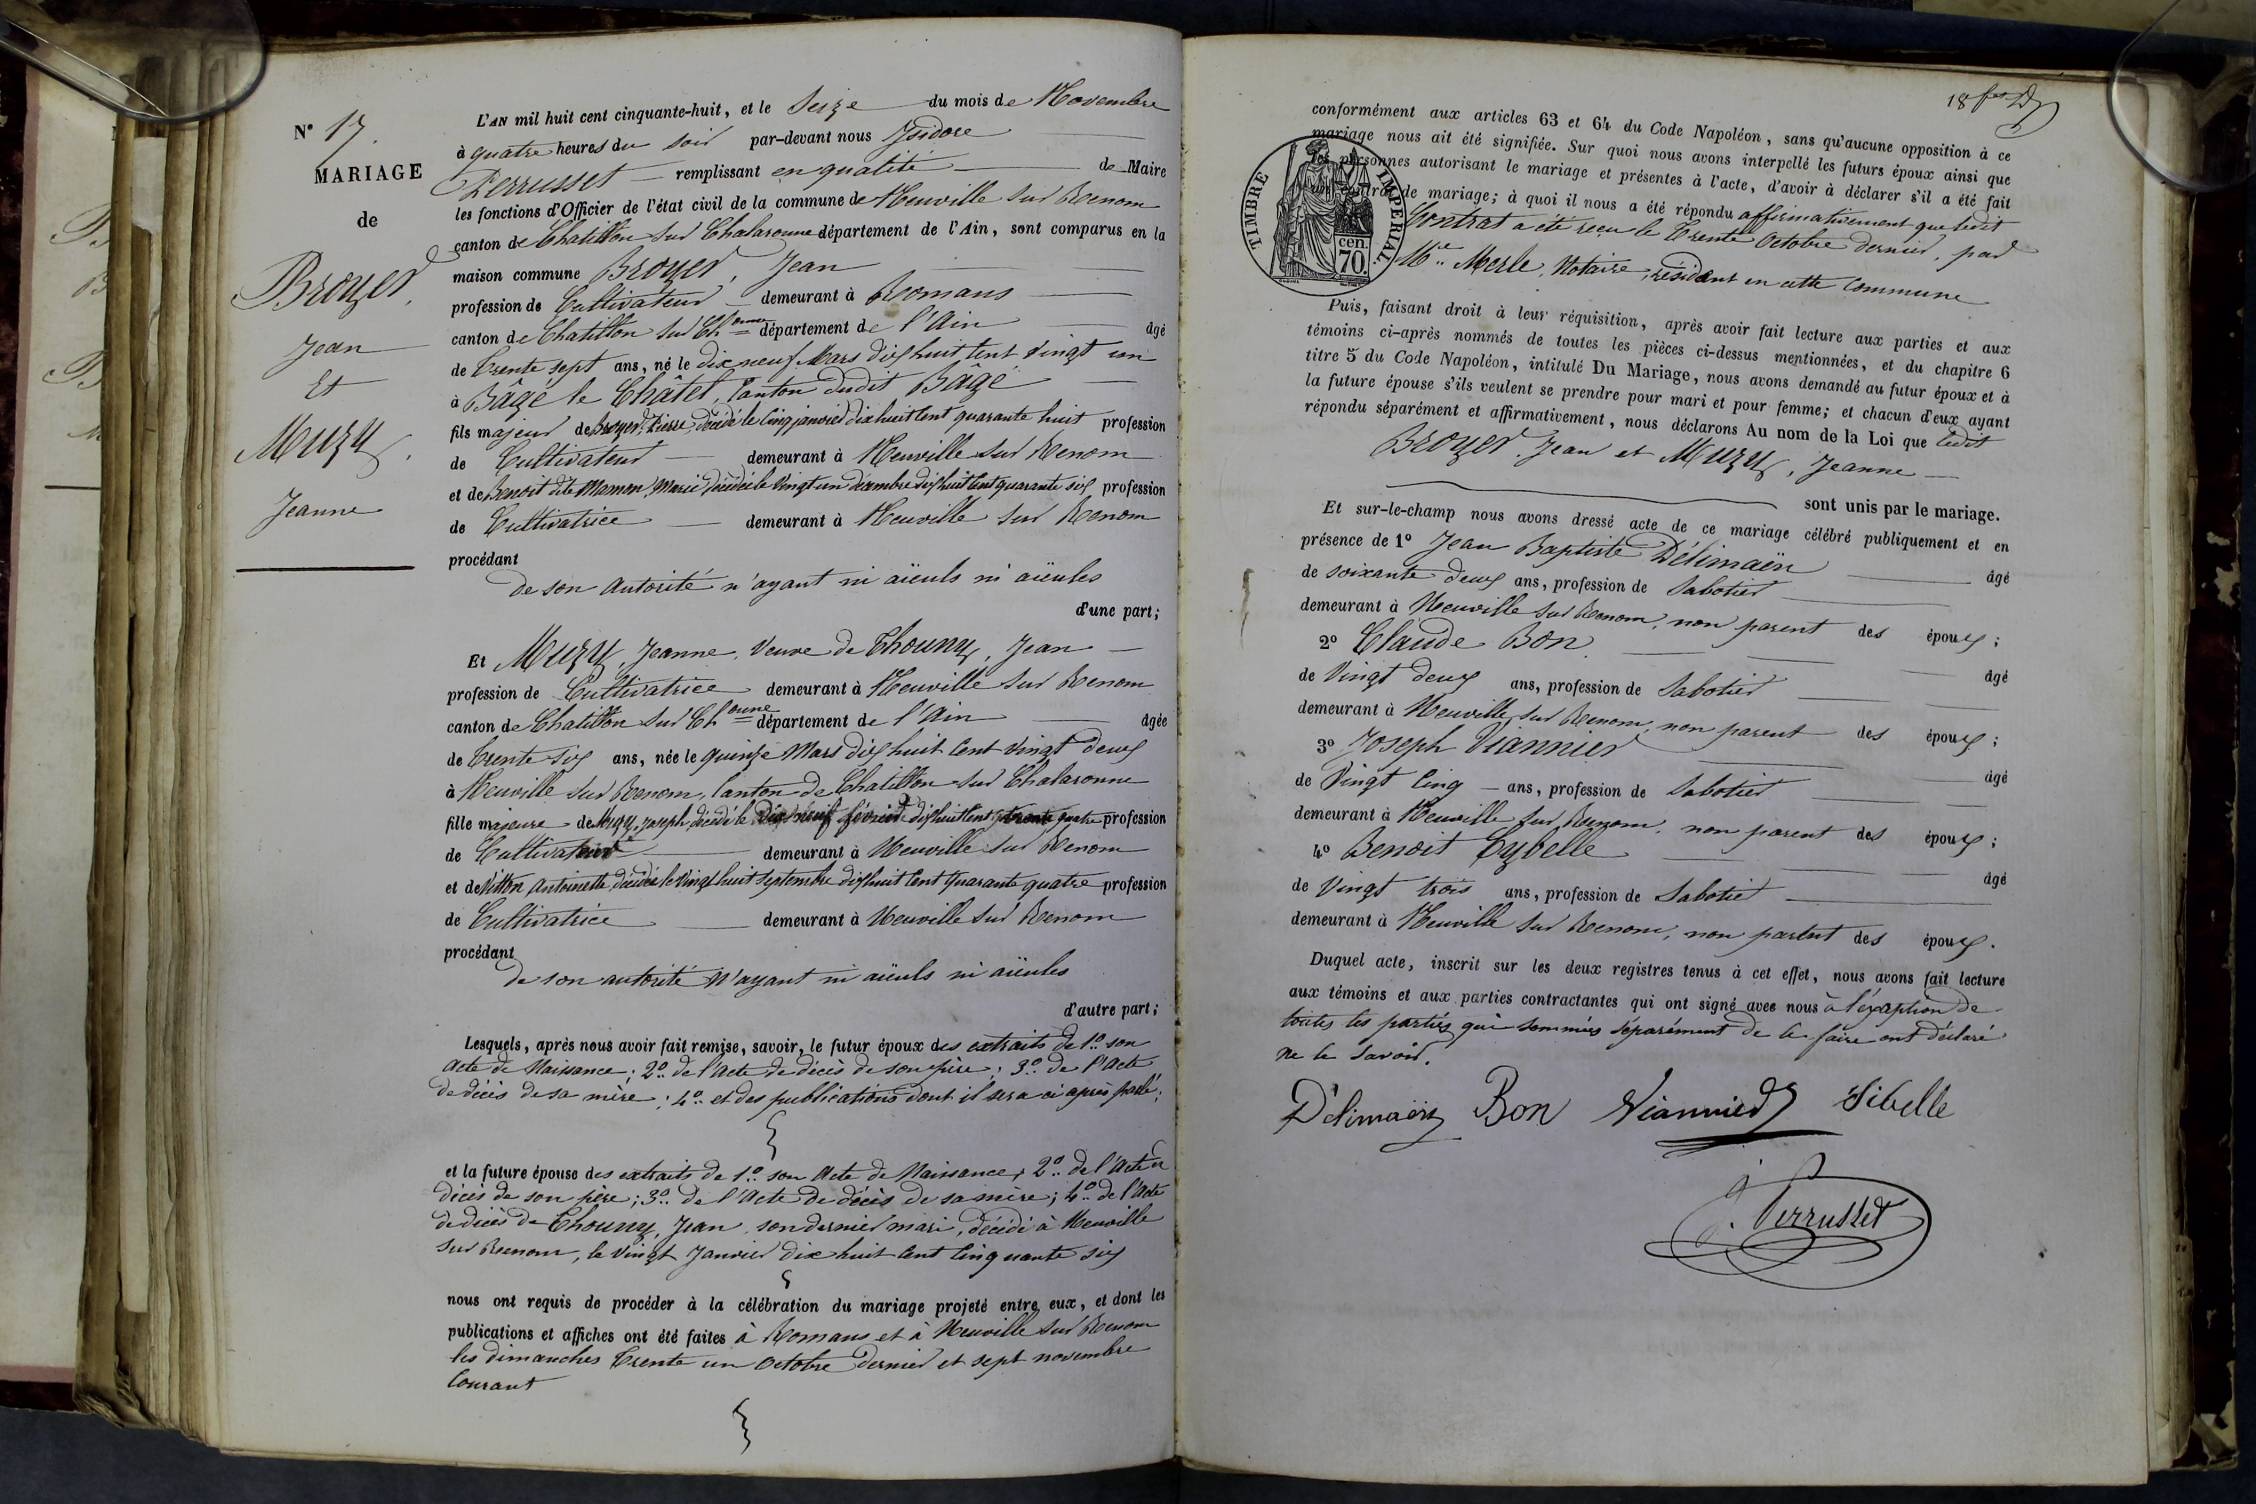 N° 17.
MARIAGE
de
Broyer,
Jean
Et
Muzy,
Jeanne
L'AN mil huit cent cinquante-huit, et le Seize du mois de Novembre
à quatre heures du soir par-devant nous Isidore
Perrusset remplissant en qualité de Maire
les fonctions d'Officier de l'état civil de la commune de Neuville sur Renom
canton de Chatillon sur Chalaronne département de l'Ain, sont comparus en la
maison commune Broyer, Jean
profession de Cultivateur demeurant à Romans
canton de Chatillon sur Chonne département de l'Ain âgé
de Trente sept ans, né le dix neuf Mars dix huit cent vingt un
à Bâgé le Châtel, Canton dudit Bâgé
fils majeur de Broyer, Pierre, décédé le Cinq janvier dix huit Cent quarante huit profession
de Cultivateur demeurant à Neuville sur Renom
et de Benoit dite Mamon, Marie décédée le Vingt un décembre dix huit Cent quarante six profession
de Cultivatrice demeurant à Neuville sur Renom
procédant
de son autorité n'ayant ni aïeuls ni aïeules
d'une part;
Et Muzy, Jeanne, Veuve de Thouny, Jean
profession de Cultivatrice demeurant à Neuville sur Renom
canton de Chatillon sur Chonne département de l'Ain âgée
de Trente six ans, née le quinze Mars dix huit Cent vingt deux
à Neuville sur Renom, Canton de Chatillon sur Chalaronne
fille majeure de Muzy, Joseph décédé le dix neuf février dix huit Cent trente quatre profession
de Cultivateur demeurant à Neuville sur Renom
et de Pitton Antoinette, décédée le Vingt huit Septembre dix huit Cent Quarante quatre profession
de Cultivatrice demeurant à Neuville sur Renom
procédant
de son autorité n'ayant ni aïeuls ni aïeules
d'autre part;
Lesquels, après nous avoir fait remise, savoir, le futur époux des extraits de 1° son
Acte de Naissance; 2° de l'Acte de décès de son père; 3° de l'Acte
de décès de sa mère; 4° et des publications dont il sera ci après parlé;
et la future épouse des extraits de 1° son Acte de Naissance, 2° de l'Acte de
décès de son père; 3° de l'Acte de décès de sa mère; 4° de l'Acte
de décès de Thouny, Jean, son dernier mari, décédé à Neuville
sur Renom, le Vingt Janvier dix huit Cent Cinquante six
nous ont requis de procéder à la célébration du mariage projeté entre eux, et dont les
publications et affiches ont été faites à Romans et à Neuville sur Renom
les dimanches Trente un Octobre dernier et sept novembre
Courant
18
conformément aux articles 63 et 64 du Code Napoléon, sans qu'aucune opposition à ce
mariage nous ait été signifiée. Sur quoi nous avons interpellé les futurs époux ainsi que
les personnes autorisant le mariage et présentes à l'acte, d'avoir à déclarer s'il a été fait
un contrat de mariage; à quoi il nous a été répondu affirmativement que ledit
Contrat a été reçu le Trente Octobre dernier, par
Me Merle, Notaire, résidant en cette Commune
TIMBRE IMPERIAL.
cen.
70.
Puis, faisant droit à leur réquisition, après avoir fait lecture aux parties et aux
témoins ci-après nommés de toutes les pièces ci-dessus mentionnées, et du chapitre 6
titre 5 du Code Napoléon, intitulé Du Mariage, nous avons demandé au futur époux et à
la future épouse s'ils veulent se prendre pour mari et pour femme; et chacun d'eux ayant
répondu séparément et affirmativement, nous déclarons Au nom de la Loi que ledit
Broyer, Jean et Muzy, Jeanne
sont unis par le mariage.
Et sur-le-champ nous avons dressé acte de ce mariage célébré publiquement et en
présence de 1° Jean Baptiste Délimaën âgé
de soixante deux ans, profession de Sabotier
demeurant à Neuville sur Renom, non parent des époux;
2° Claude Bon âgé
de Vingt deux ans, profession de Sabotier
demeurant à Neuville sur Renom, non parent des époux;
3° Joseph Viannier âgé
de Vingt Cinq ans, profession de Sabotier
demeurant à Neuville sur Renom, non parent des époux;
4° Benoit Cybelle âgé
de Vingt trois ans, profession de Sabotier
demeurant à Neuville sur Renom, non parent des époux.
Duquel acte, inscrit sur les deux registres tenus à cet effet, nous avons fait lecture
aux témoins et aux parties contractantes qui ont signé avec nous à l'éxaption de
toutes les parties qui sommées séparément de le faire ont déclaré
ne le savoir.
Délimaën Bon Viannier Sibelle
J. Perrusset